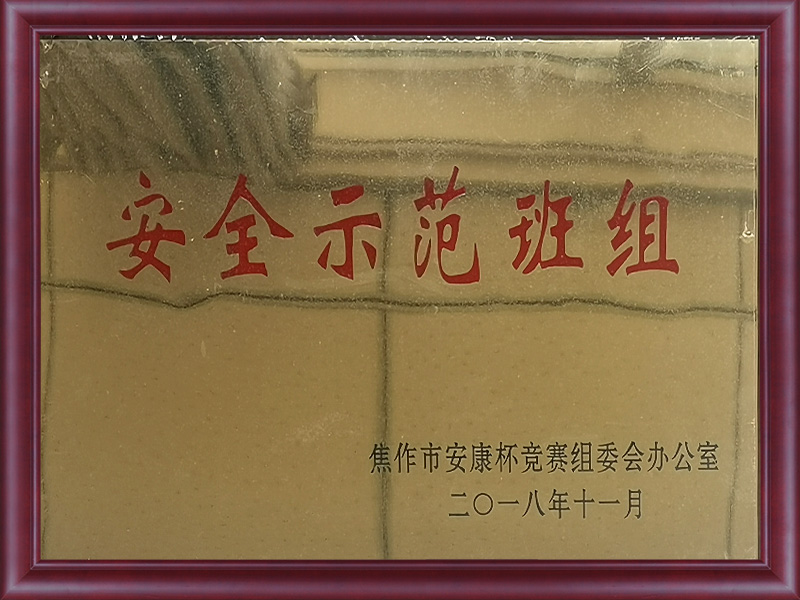 安全示范班组
焦作市安康杯竞赛组委会办公室
二〇一八年十一月